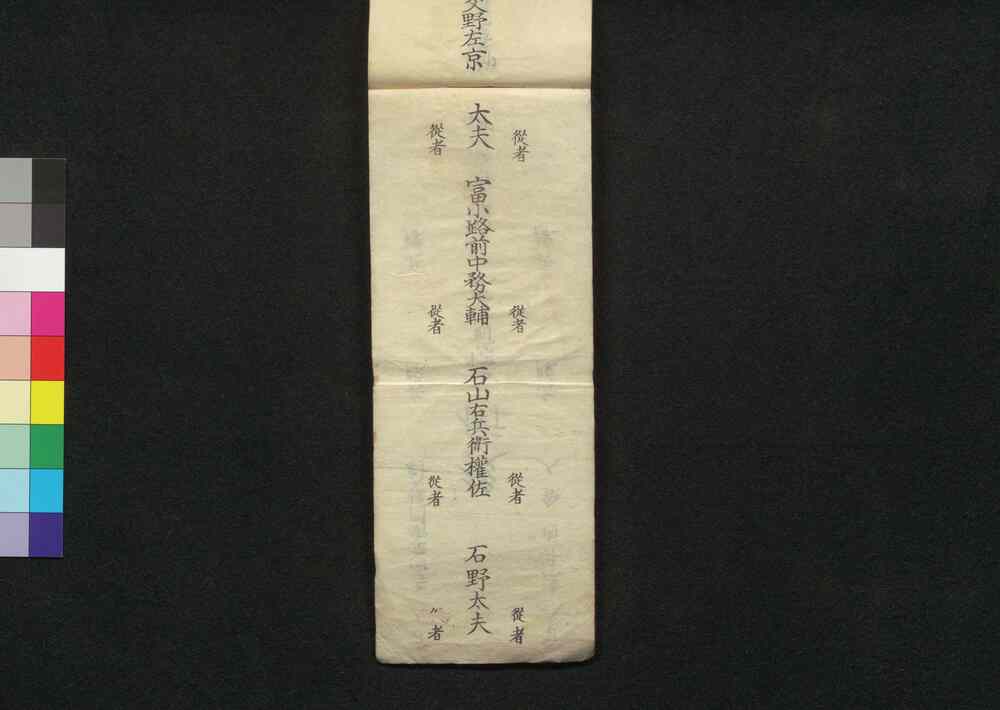 交野左京
從者
從者
從者
從者
太夫　富小路前中務大輔　石山右兵衛權佐　石野太夫
從者
從者
從者
〃者